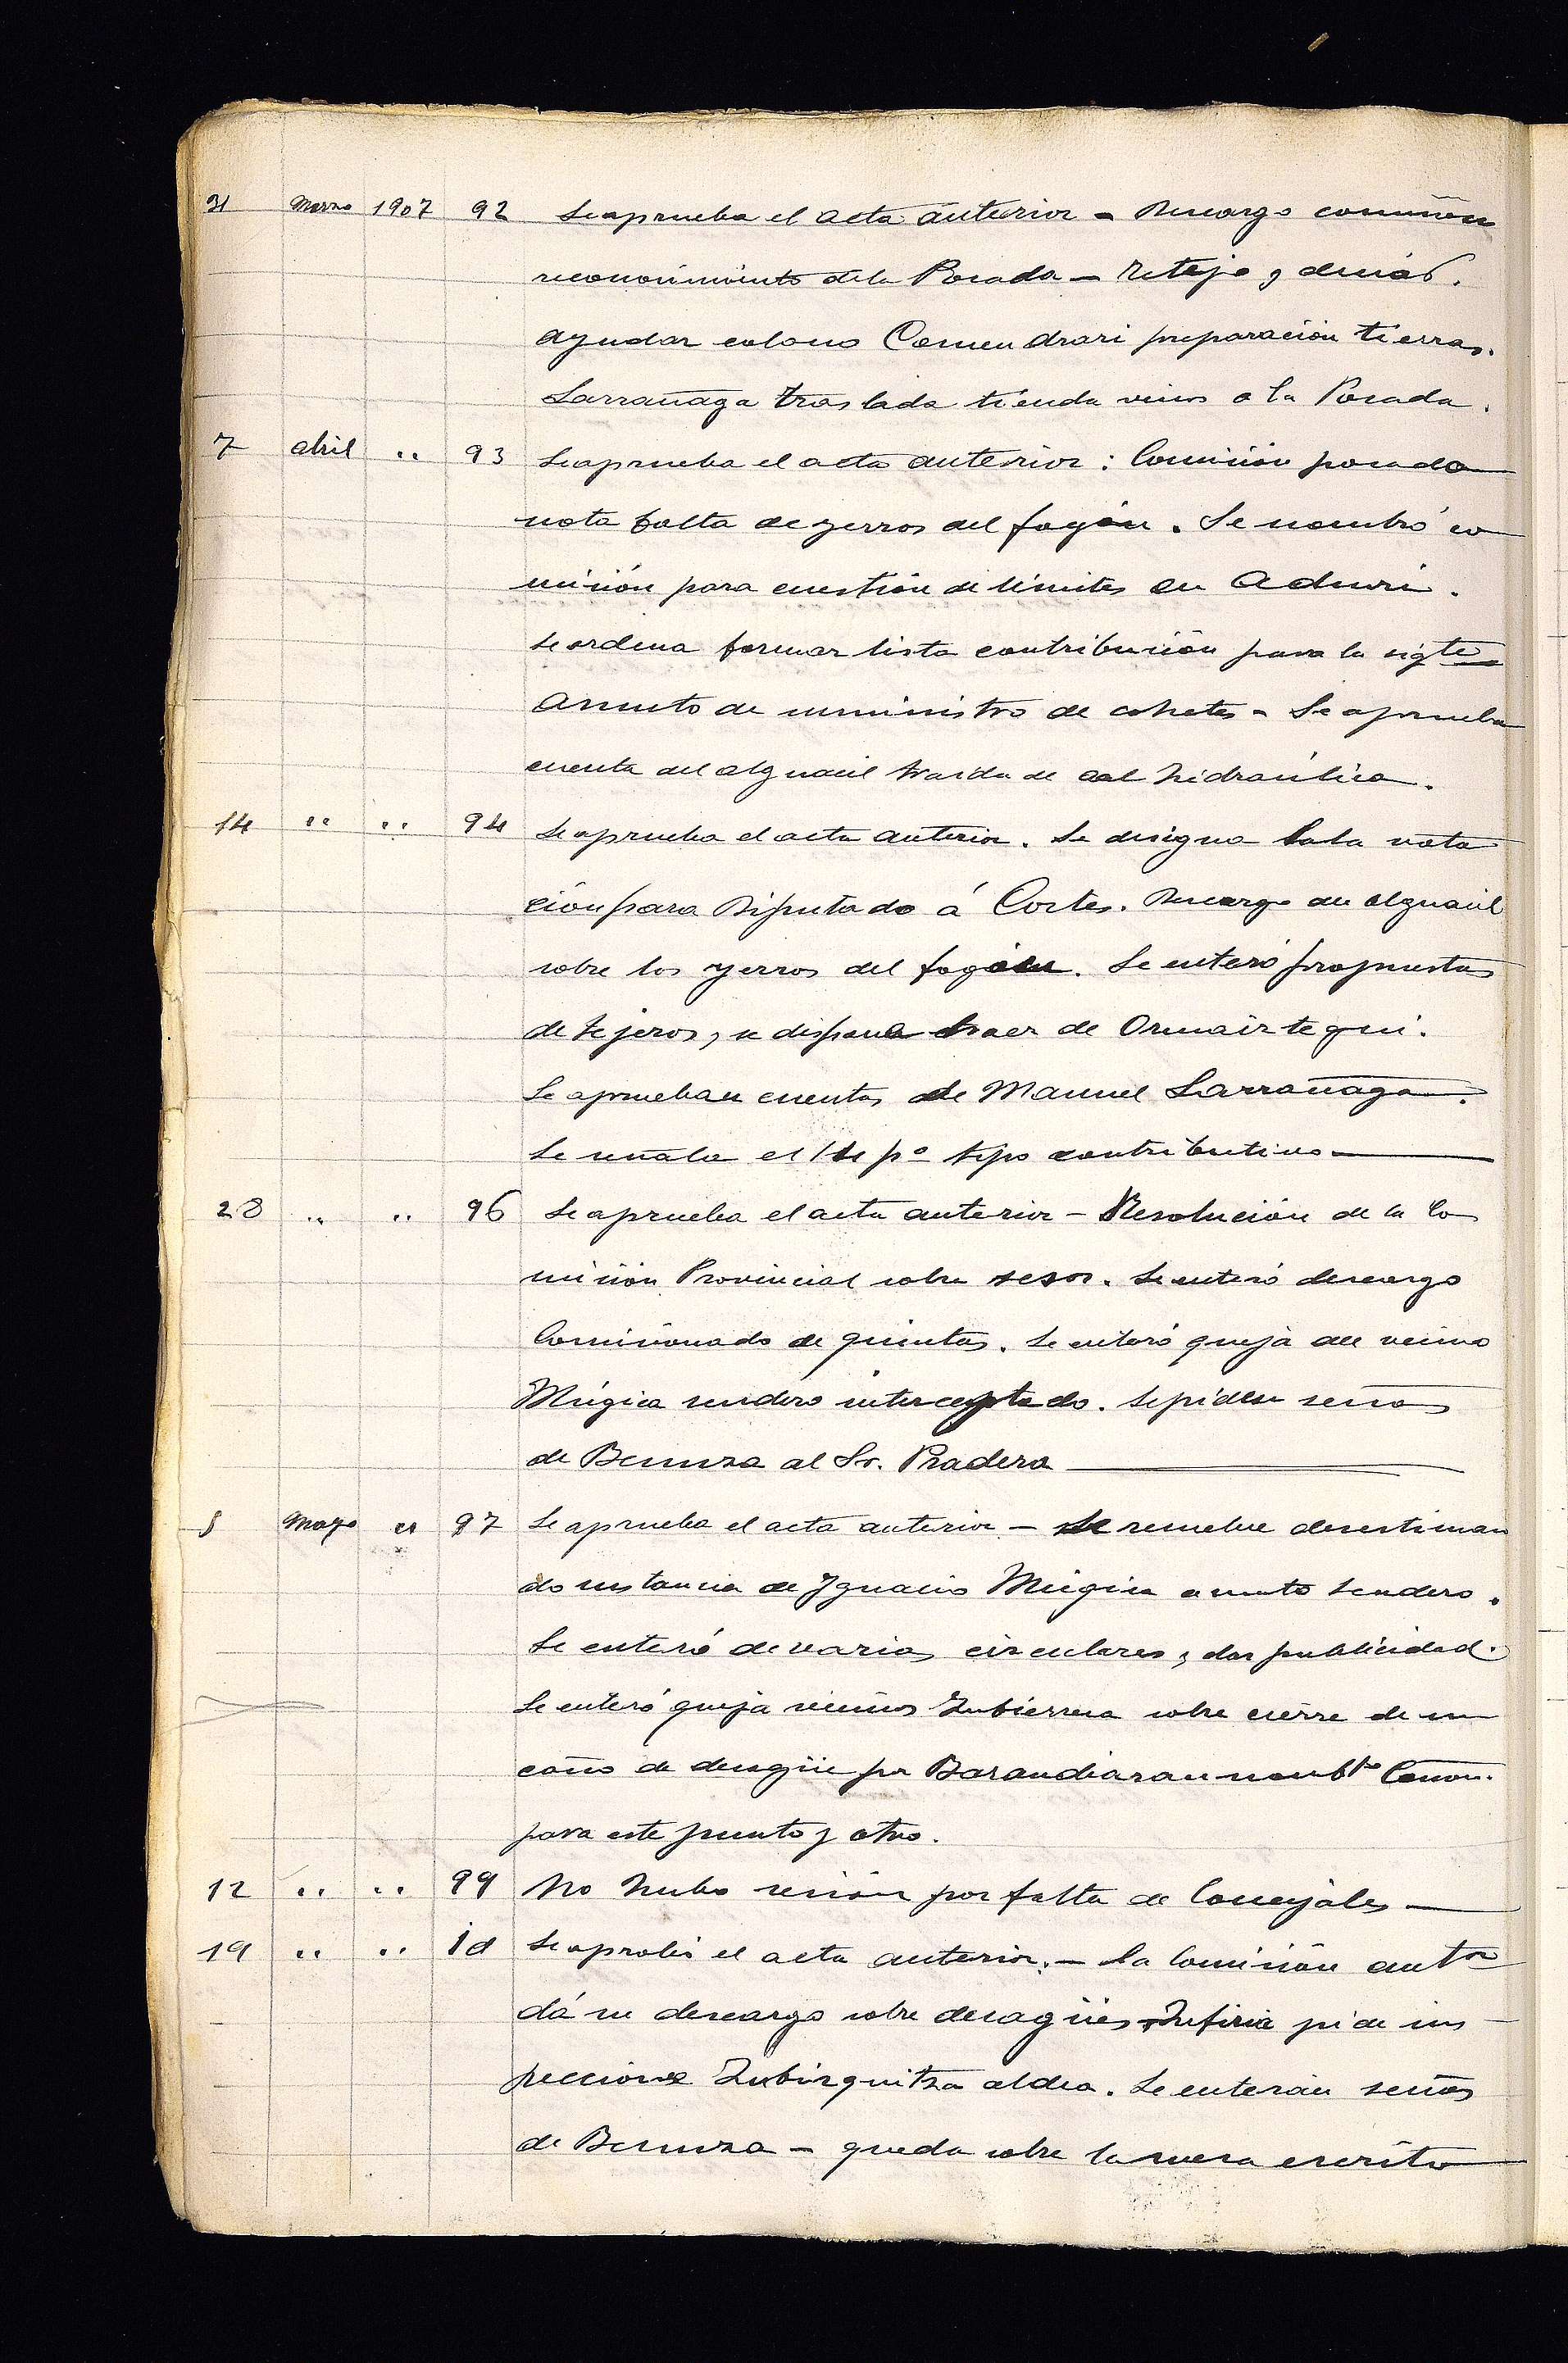 31 Marzo 1907 92 Se aprueba el acta anterior - Descargo comisión
reconocimiento de la Posada - retejo y demás.
ayudar colono Comendrari preparación tierras.
Larrañaga traslada tienda vinos a la Posada.
7 abril " 93 Se aprueba el acta anterior: Comisión posada
nota falta de yerros del fogón. Se nombró co
misión para cuestión de límites en Aduriz.
Se ordena formar lista contribución para la sigte
Asunto de suministro de cohetes - Se aprueba
cuenta del alguacil traida de cal hidraúlica.
14 " " 94 Se aprueba el acta anterior. Se designa Sala vota
ción para Diputado á Cortes. Descargo del alguacil
sobre los yerros del fogón. Se enteró propuestas
de tejeros, se dispone traer de Ormaiztegui.
Se aprueban cuentas de Manuel Larrañaga.
Se señala el 14 pº tipo contributivo
28 " " 96 Se aprueba el acta anterior - Resolución de la Co
misión Provincial sobre seson. Se enteró descargo
Comisionado de quintas. Se enteró queja del vecino
Múgica sendero interceptado. Se piden señas
de Berunza al Sr. Pradera
5 Mayo " 97 Se aprueba el acta anterior - Se resuelve desestiman
do instancia de Ygnacio Múgica asunto sendero.
Se enteró de varias circulares, dar publicidad.
Se enteró queja vecinos Zubierrena sobre cierre de un
caño de desagüe por Barandiaran nombto Comon.
para este punto y otro.
12 " " 99 No hubo sesión por falta de Concejales
19 " " id Se aprobó el acta anterior. - La Comisión autor
dá su descargo sobre desagües pide ins
pecciones aldea. Se enterán señas
de Berunza - queda sobre la mesa escrito